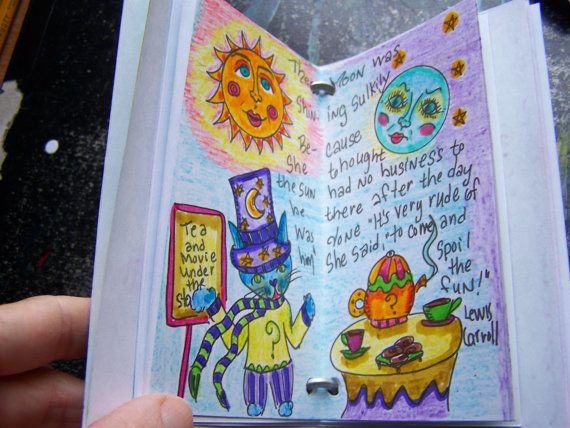 The Moon was
Shin-ing sulkily
Be-cause
She thought
the sun had no business to
be there after the day
was done "It's very rude of
him" She said, "to come and
Spoil
the
fun!"
Lewis
Carroll
Tea
and
Movie
under
the
?
?